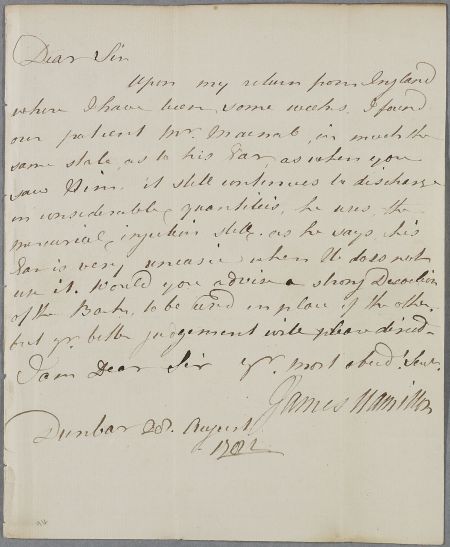 Dear Sir
Upon my return from England
where I have been some weeks, I found
our patient Mr. Macnab, in much the
same state, as to his Ear, as when you
saw Him. it still continues to discharge
in considerable quantities, he uses the
mercurial injection still. as he says his
Ear is very uneasie when He does not
use it. Would you advise a strong Decoction
of the Bark, to be used in place of the other,
but yr. better judgement will please direct
I am Dear Sir yr. most obedt. Servt.
James Hamilton
Dunbar 28. August
1782